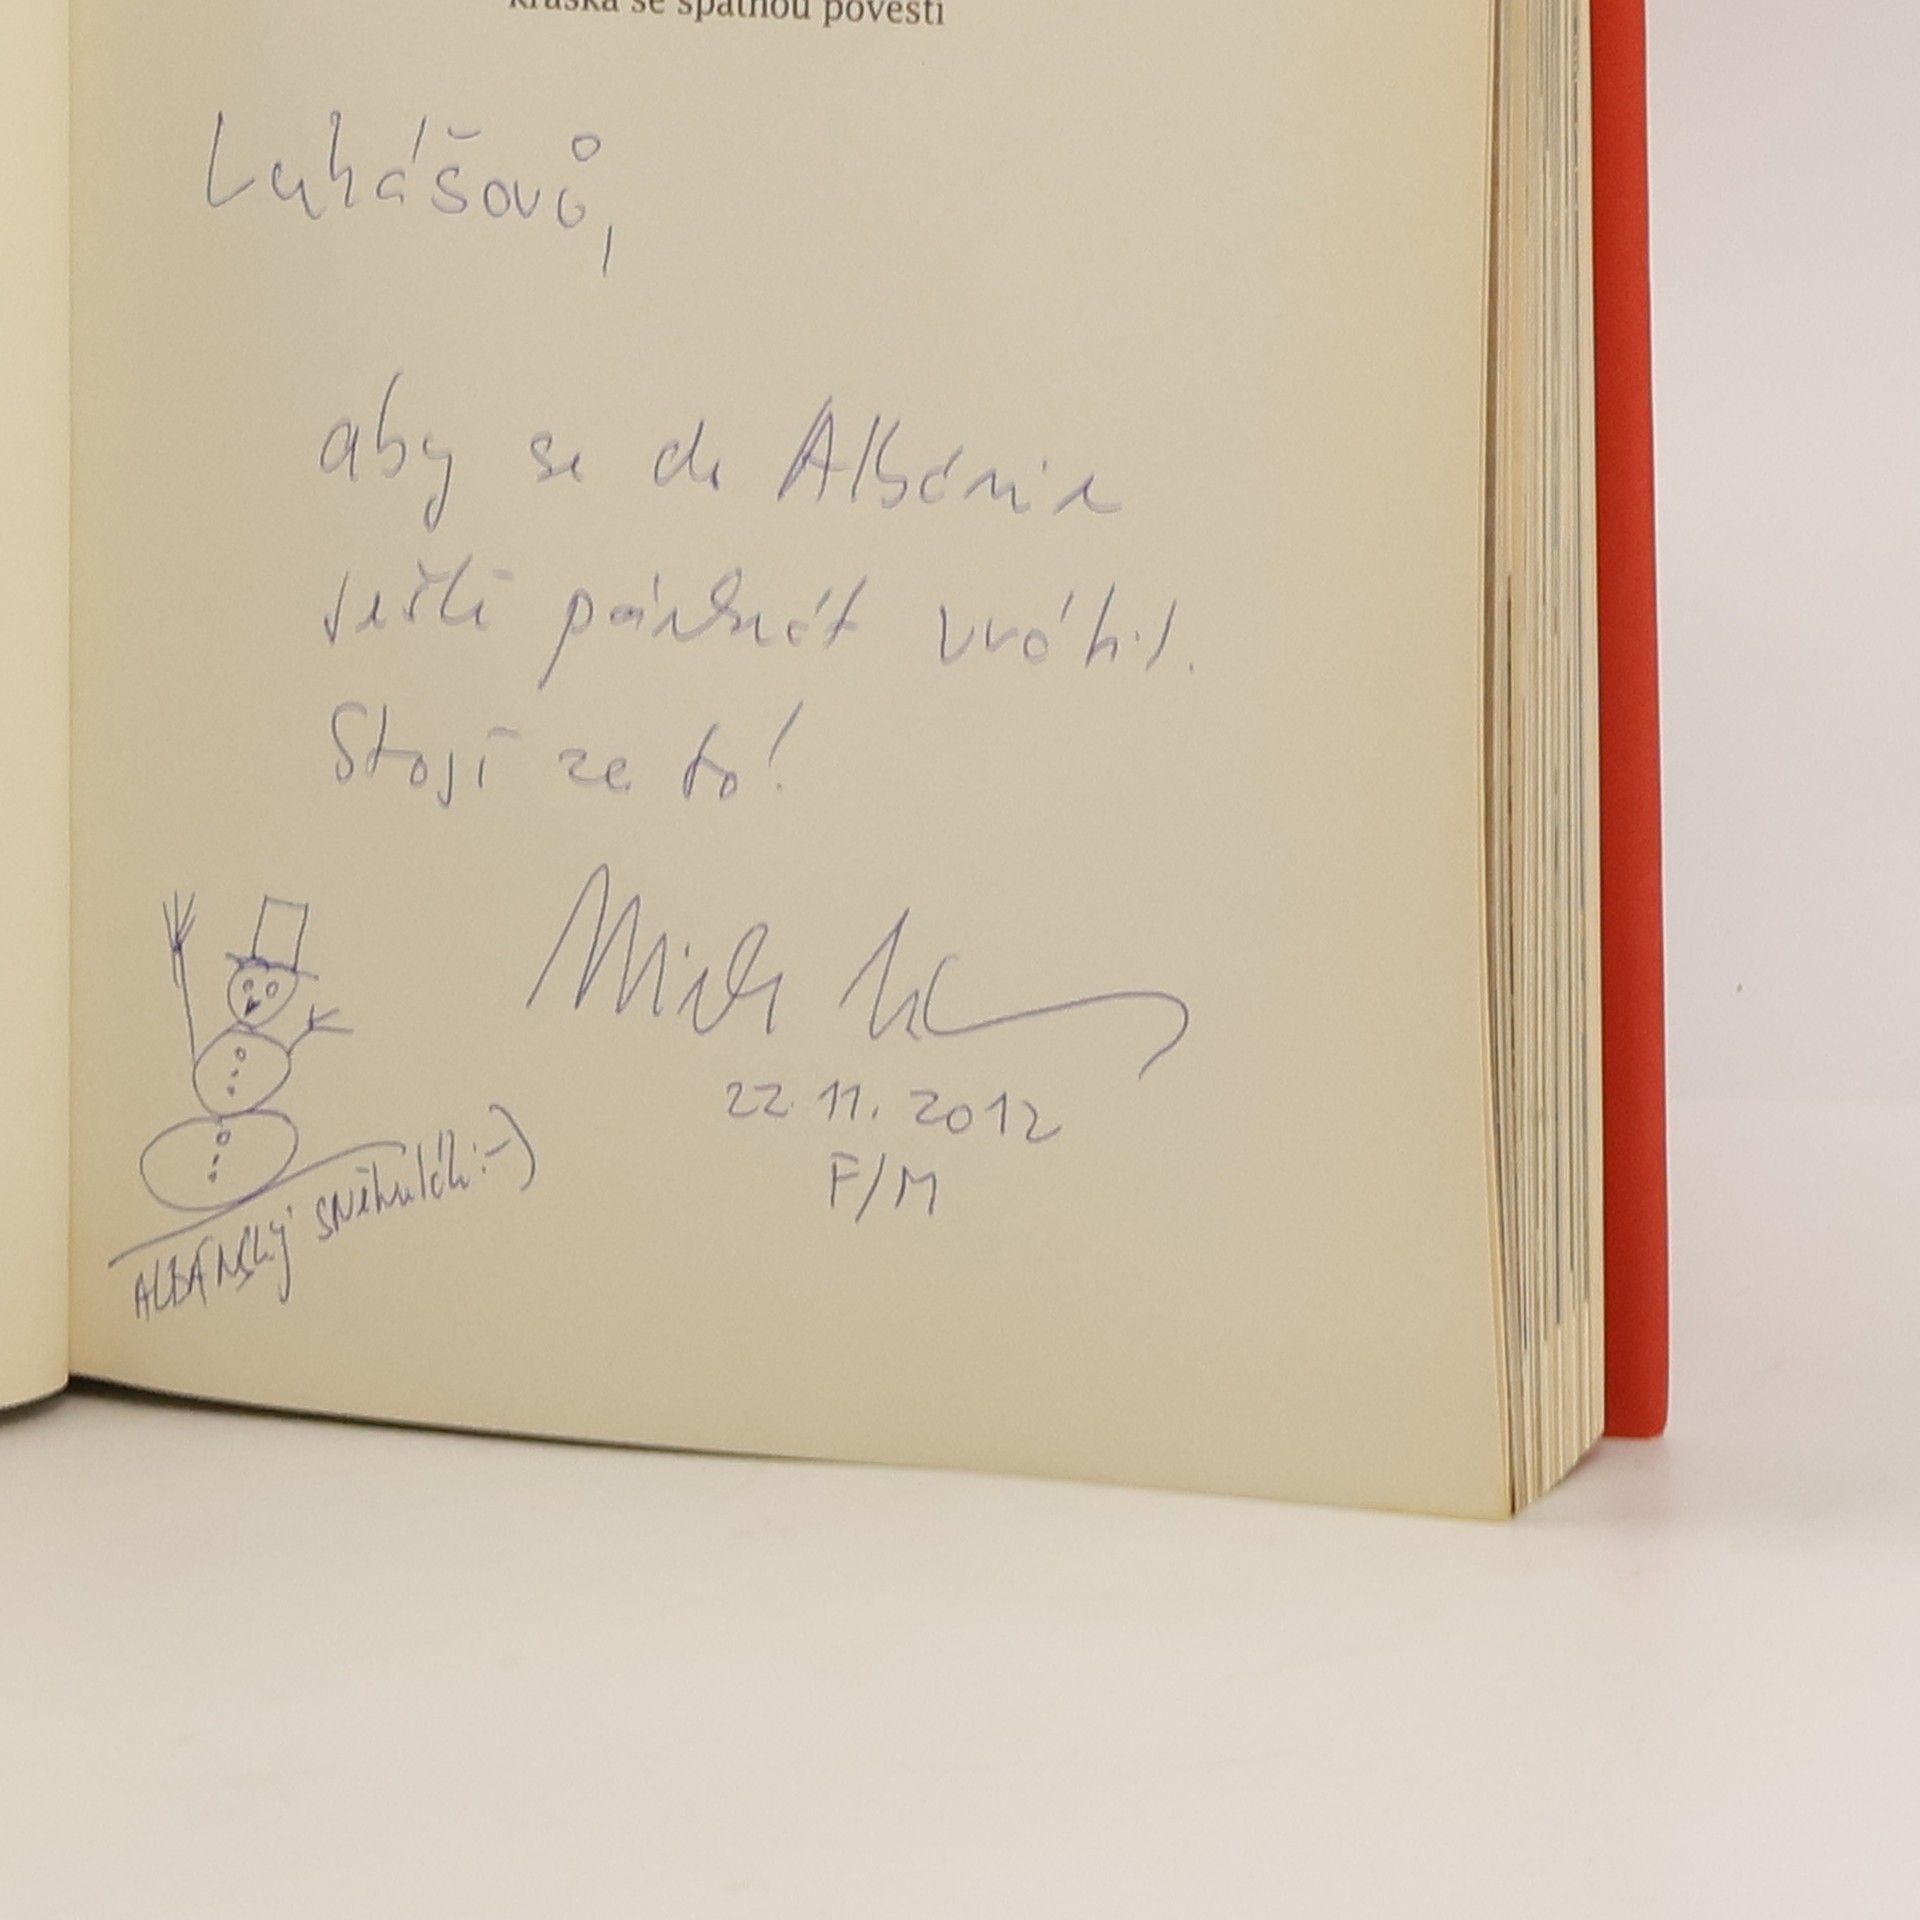 kráska se špatnou pověstí
Lukášovů,
aby se do Albánie
ještě párkrát vrátil.
Stojí za to!
22. 11. 2012
F/M
ALBÁNSKÝ SNĚHULÁK :-)